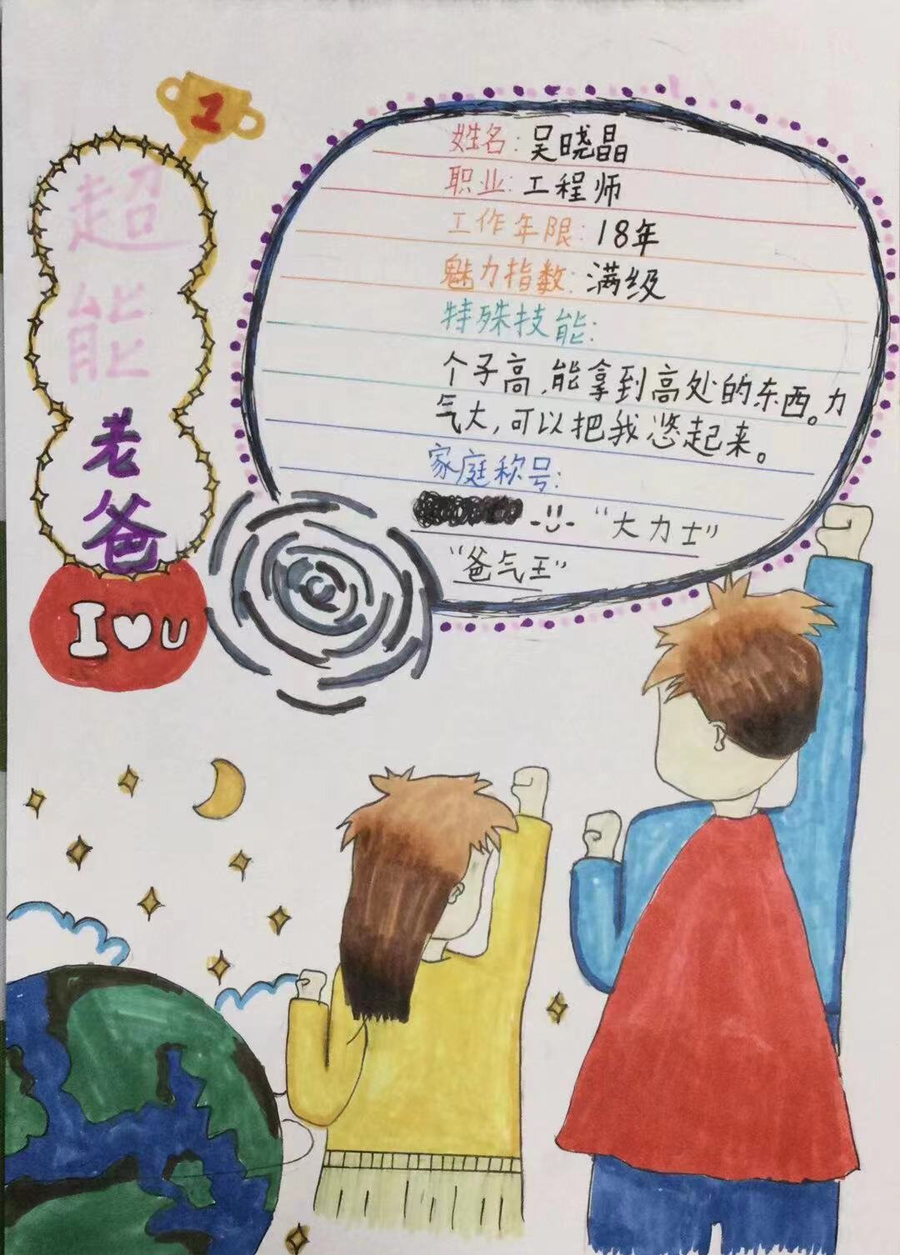 1
超能老爸
I ♡ U
姓名:吴晓晶
职业:工程师
工作年限:18年
魅力指数:满级
特殊技能:
个子高,能拿到高处的东西。力
气大,可以把我悠起来。
家庭称号:
"大力士"
"爸气王"